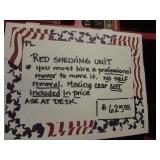 PL
RED SHELVING UNIT
* you must hire a professional
mover to move it. NO SELF
removal. Moving cost NOT
included in price
ASK AT DESK.
$625.00